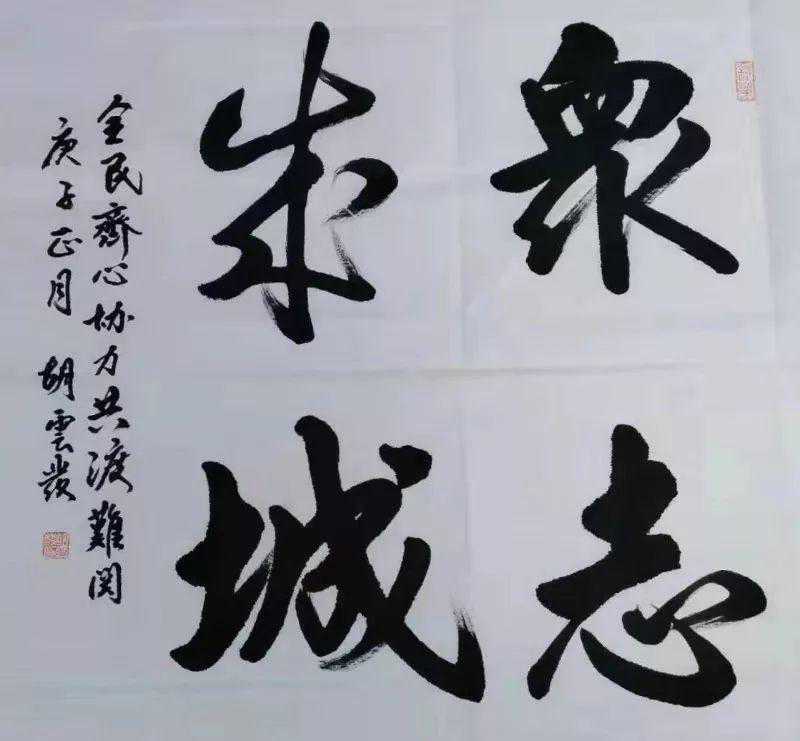 眾志
成城
全民齊心协力共渡難関
庚子正月 胡雲